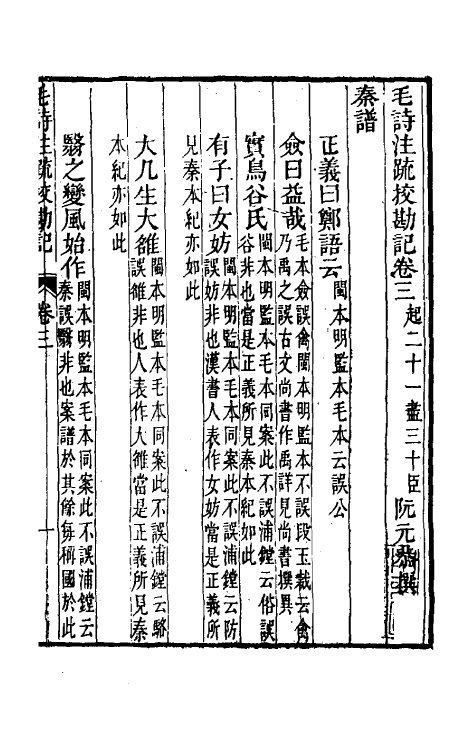 毛詩注疏挍勘記卷三 起二十一盡三十 臣阮元恭撰
秦譜
正義曰鄭語云 閩本明監本毛本云誤公
僉曰益哉 毛本僉誤禽閩本明監本不誤段玉裁云禽
乃禹之誤古文尚書作禹詳見尚書撰異
實鳥谷氏 閩本明監本毛本同案此不誤浦鏜云俗誤
谷非也當是正義所見秦本紀如此
有子曰女妨 閩本明監本毛本同案此不誤浦鏜云防
誤妨非也漢書人表作女妨當是正義所
見秦本紀亦如此
大几生大雒 閩本明監本毛本同案此不誤浦鏜云駱
誤雒非也人表作大雒當是正義所見秦
本紀亦如此
翳之變風始作 閩本明監本毛本同案此不誤浦鏜云
秦誤翳非也案譜於其餘每稱國於此
毛詩注疏挍勘記 卷三 一